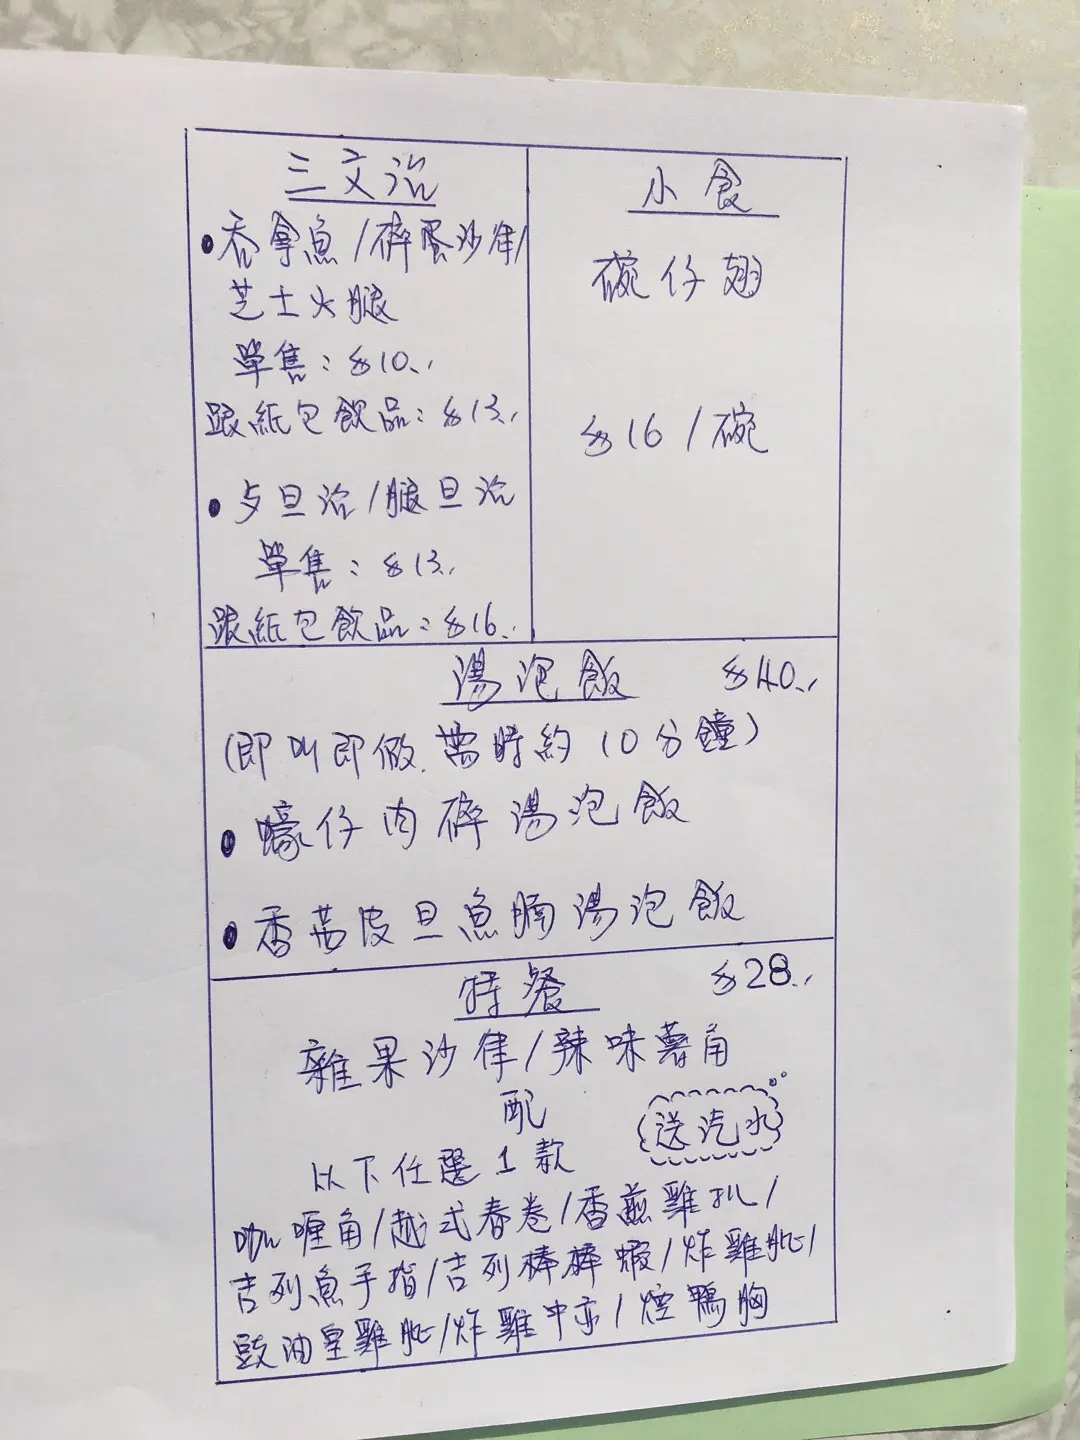 三文治
•吞拿魚/碎蛋沙律/
芝士火腿
單售：$10.
跟紙包飲品：$13.
•歺旦治/腿旦治
單售：$13.
跟紙包飲品：$16.
小食
碗仔翅
$16/碗
湯泡飯 $40.
(即叫即做.需時約10分鐘)
•蠔仔肉碎湯泡飯
•香茜皮旦魚腩湯泡飯
特餐 $28.
雜果沙律/辣味薯角
配
送汽水
以下任選1款
咖喱角/越式春卷/香煎雞扒/
吉列魚手指/吉列棒棒蝦/炸雞肶/
豉油皇雞肶/炸雞中亦/煙鴨胸